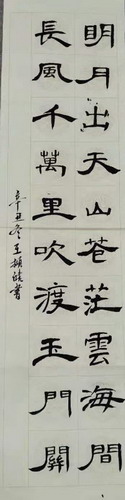 明月出天山蒼茫雲海間
長風千萬里吹渡玉門關
辛丑冬王
書